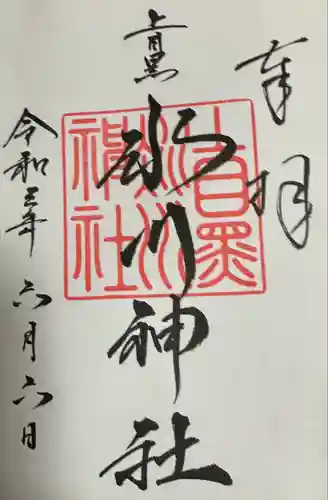 奉拝
上目黒
氷川神社
目黒氷川神社
令和三年六月六日